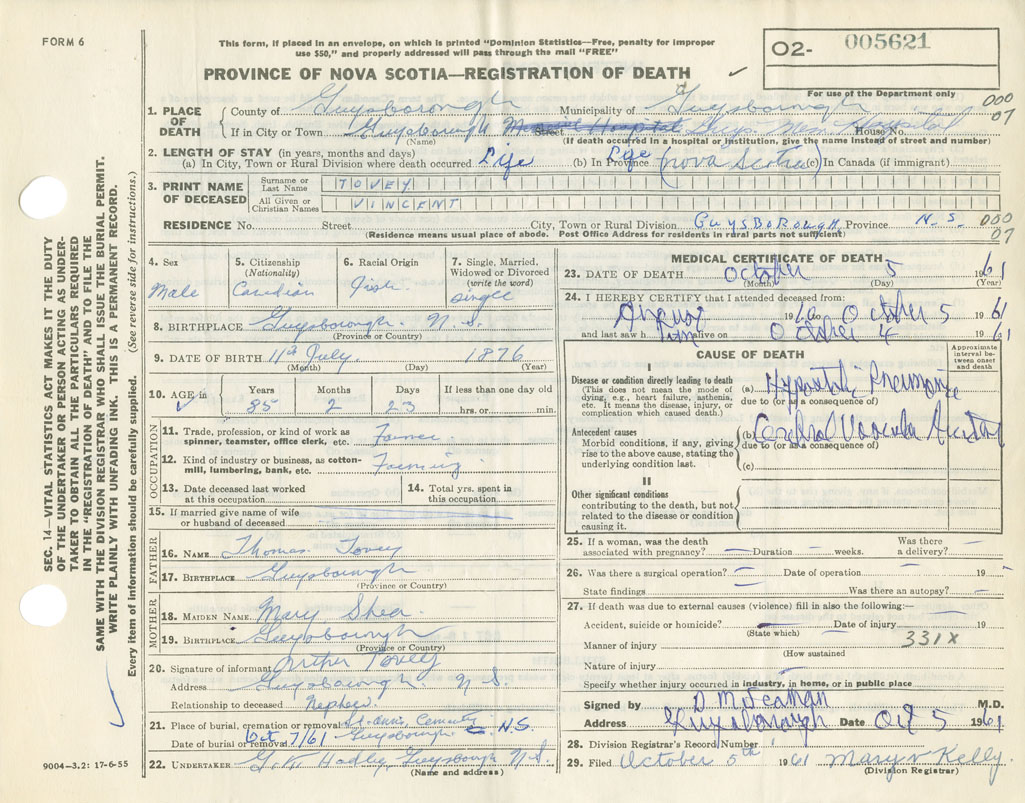 FORM 6
This form, if placed in an envelope, on which is printed "Dominion Statistics—Free, penalty for improper
use $50," and properly addressed will pass through the mail "FREE"
02- 005621
For use of the Department only
PROVINCE OF NOVA SCOTIA—REGISTRATION OF DEATH
1. PLACE OF DEATH
County of Guysborough Municipality of Guysborough 000 07
If in City or Town Guysborough Street Hospital Guys. Mem. Hospital House No.
(Name) (If death occurred in a hospital or institution, give the name instead of street and number)
2. LENGTH OF STAY (in years, months and days)
(a) In City, Town or Rural Division where death occurred Life (b) In Province Life (Nova Scotia) (c) In Canada (if immigrant)
3. PRINT NAME OF DECEASED
Surname or Last Name TOVEY
All Given or Christian Names VINCENT
RESIDENCE No. Street City, Town or Rural Division GUYSBOROUGH Province N.S. 000 07
(Residence means usual place of abode. Post Office Address for residents in rural parts not sufficient)
4. Sex Male
5. Citizenship (Nationality) Canadian
6. Racial Origin Irish
7. Single, Married, Widowed or Divorced (write the word) Single
8. BIRTHPLACE Guysborough. N.S.
(Province or Country)
9. DATE OF BIRTH 11th July 1876
(Month) (Day) (Year)
10. AGE in Years 85 Months 2 Days 23 If less than one day old hrs. or min.
OCCUPATION
11. Trade, profession or kind of work as spinner, teamster, office clerk, etc. Farmer
12. Kind of industry or business, as cotton-mill, lumbering, bank, etc. Farming
13. Date deceased last worked at this occupation
14. Total yrs. spent in this occupation
15. If married give name of wife or husband of deceased
FATHER
16. NAME Thomas Tovey
17. BIRTHPLACE Guysborough
(Province or Country)
MOTHER
18. MAIDEN NAME Mary Shea
19. BIRTHPLACE Guysborough
(Province or Country)
20. Signature of informant Arthur Tovey
Address Guysborough. N.S.
Relationship to deceased Nephew
21. Place of burial, cremation or removal St. Ann's Cemetery N.S.
Date of burial or removal Oct 7/61 Guysborough
22. UNDERTAKER Hadley, Guysborough N.S.
(Name and address)
MEDICAL CERTIFICATE OF DEATH
23. DATE OF DEATH October 5 1961
(Month) (Day) (Year)
24. I HEREBY CERTIFY that I attended deceased from:
to October 5 1961
and last saw him alive on October 4 1961
CAUSE OF DEATH
Approximate interval between onset and death
I
Disease or condition directly leading to death
(This does not mean the mode of dying, e.g., heart failure, asthenia, etc. It means the disease, injury, or complication which caused death.)
(a) Hypostatic Pneumonia
due to (or as a consequence of)
Antecedent causes
Morbid conditions, if any, giving rise to the above cause, stating the underlying condition last.
(b) Cerebral Vascular Accident
due to (or as a consequence of)
(c)
II
Other significant conditions
contributing to the death, but not related to the disease or condition causing it.
25. If a woman, was the death associated with pregnancy? — Duration — weeks. Was there a delivery? —
26. Was there a surgical operation? — Date of operation — 19 —
State findings — Was there an autopsy? —
27. If death was due to external causes (violence) fill in also the following:—
Accident, suicide or homicide? — Date of injury — 19
(State which)
Manner of injury 331X
(How sustained)
Nature of injury
Specify whether injury occurred in industry, in home, or in public place
Signed by M.D.
Address Guysborough Date Oct 5 1961
28. Division Registrar's Record Number
29. Filed October 5th 1961 Mary V Kelly
(Division Registrar)
SEC. 14—VITAL STATISTICS ACT MAKES IT THE DUTY
OF THE UNDERTAKER OR PERSON ACTING AS UNDER-
TAKER TO OBTAIN ALL THE PARTICULARS REQUIRED
IN THE "REGISTRATION OF DEATH" AND TO FILE THE
SAME WITH THE DIVISION REGISTRAR WHO SHALL ISSUE THE BURIAL PERMIT.
WRITE PLAINLY WITH UNFADING INK. THIS IS A PERMANENT RECORD.
Every item of information should be carefully supplied. (See reverse side for instructions.)
9004—3.2: 17-6-55